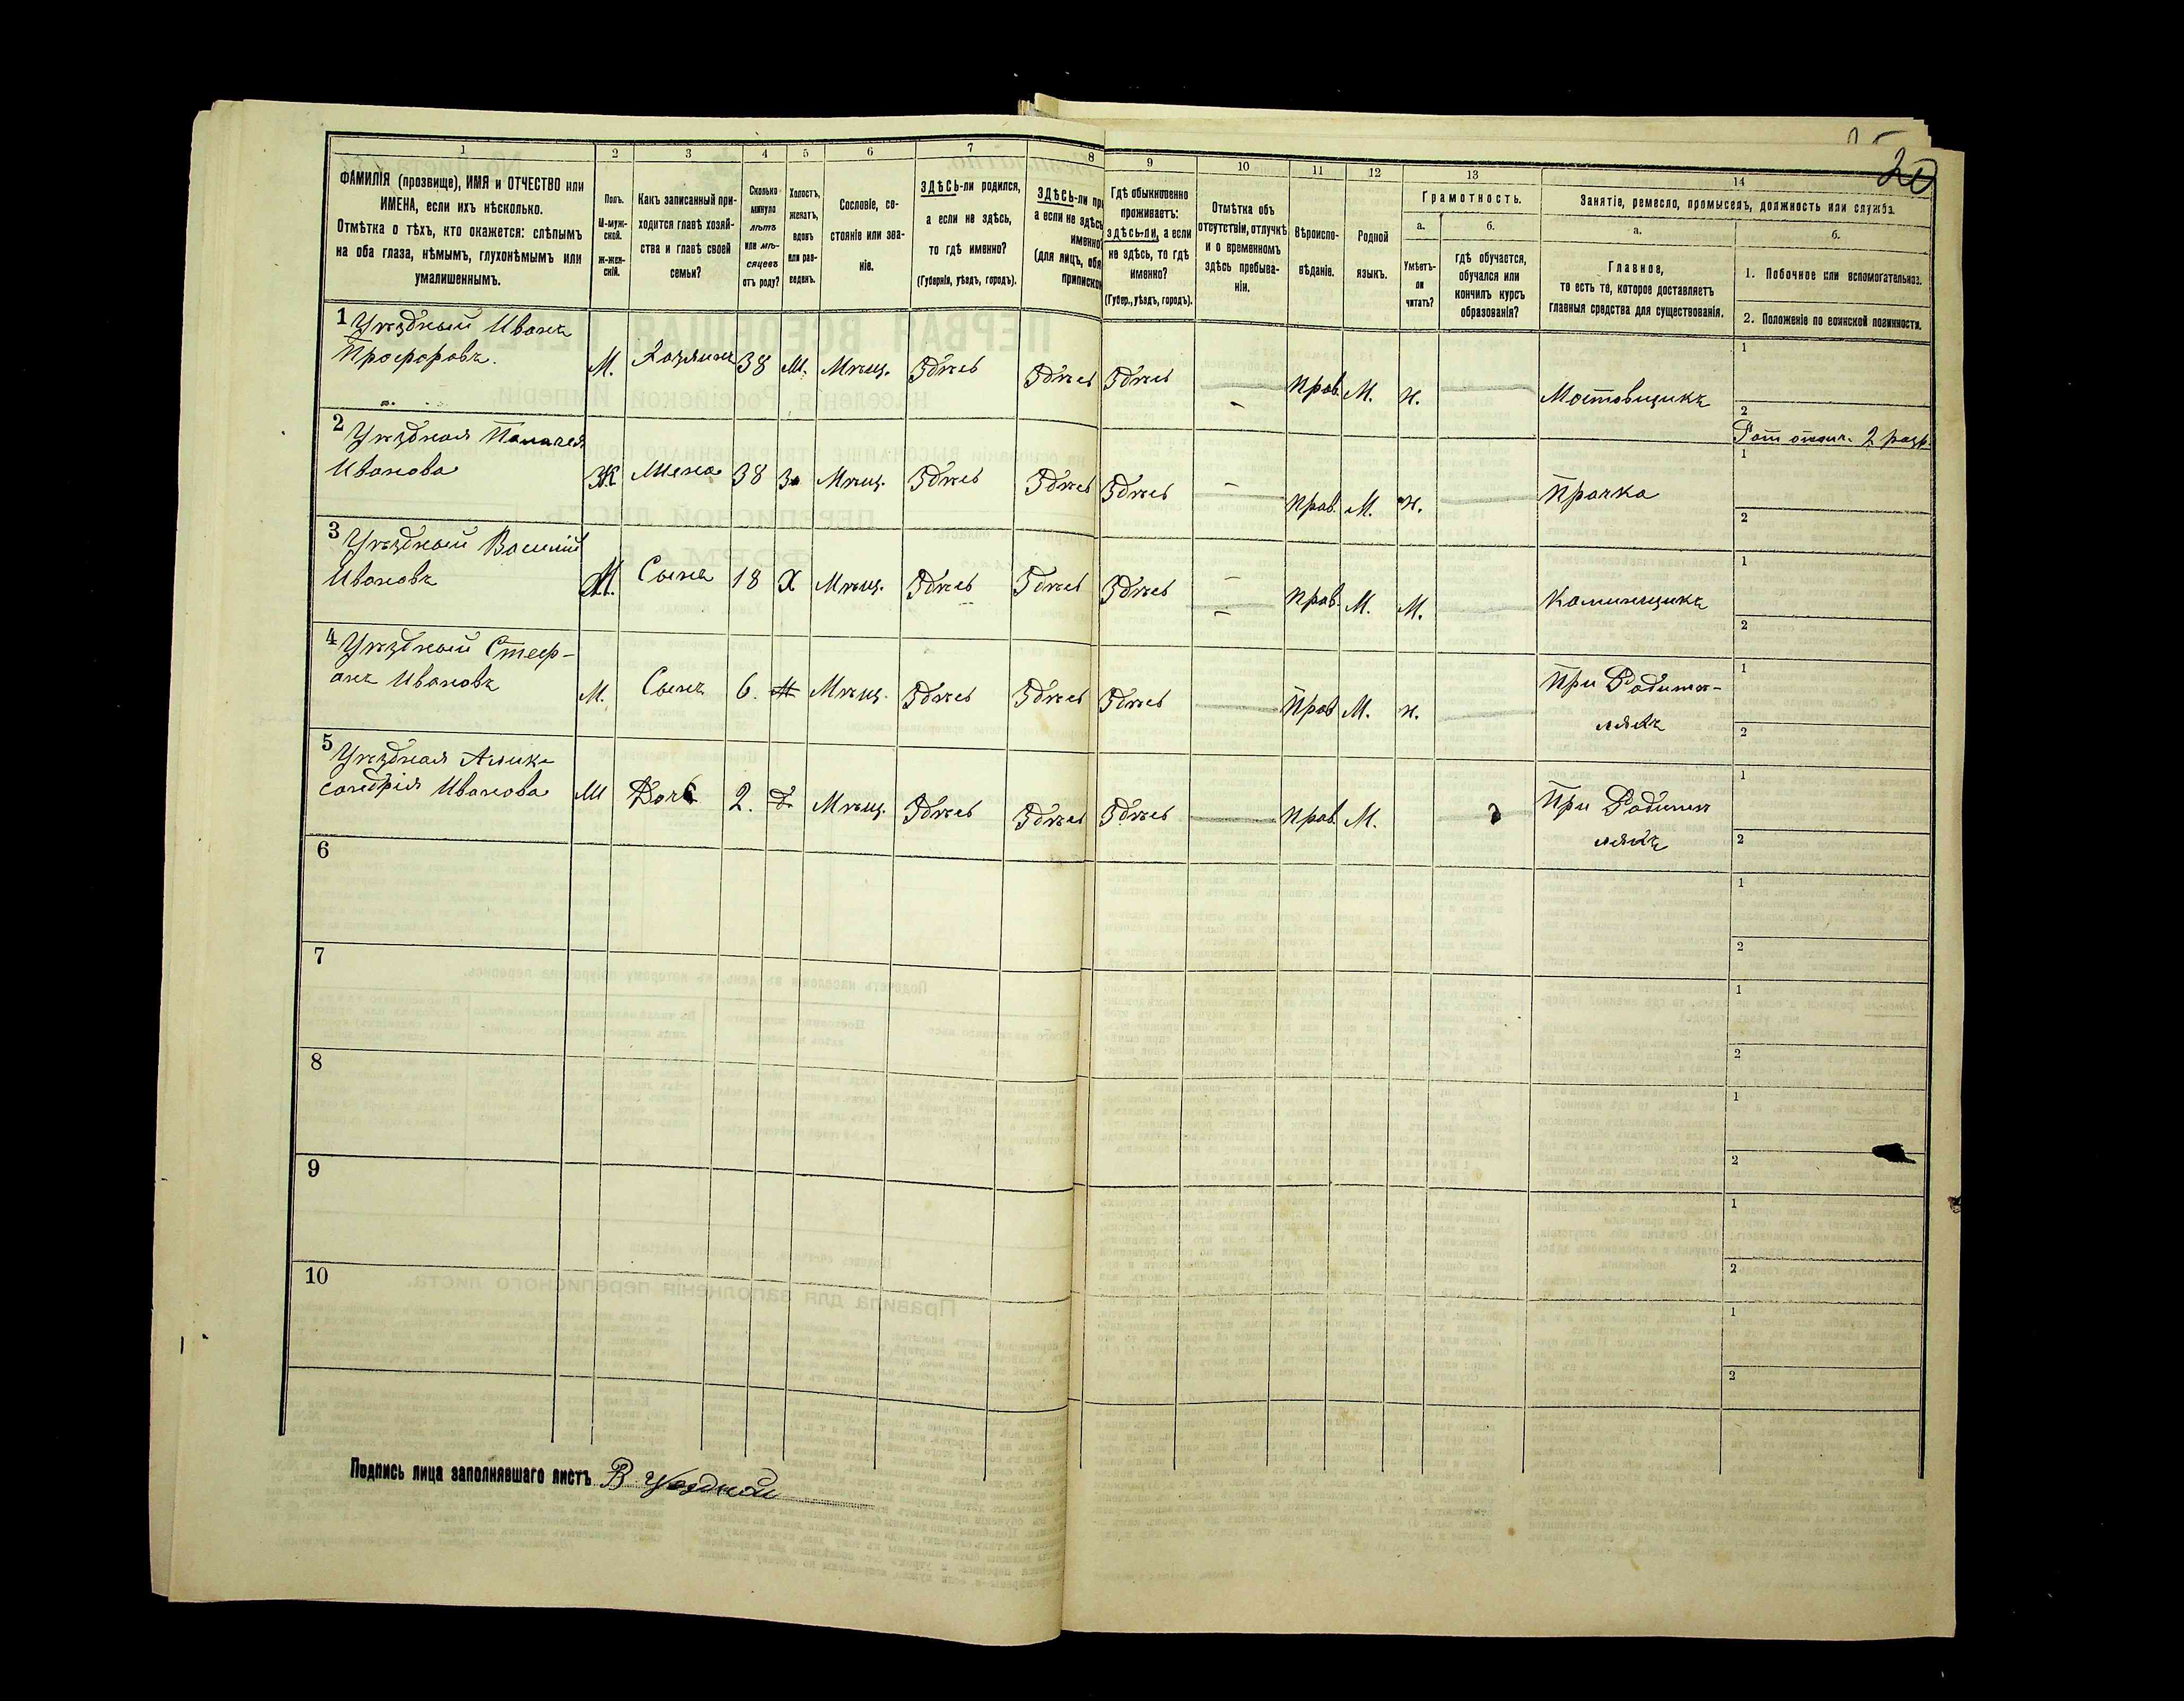 1 2 3 4 5 6 7 8 9 10 11 12 13 14
ФАМИЛІЯ (прозвище), ИМЯ и ОТЧЕСТВО или
ИМЕНА, если ихъ нѣсколько.
Отмѣтка о тѣхъ, кто окажется: слѣпымъ
на оба глаза, нѣмымъ, глухонѣмымъ или
умалишеннымъ.
Полъ.
М-муж-
ской.
ж-жен-
скій.
Какъ записанный при-
ходится главѣ хозяй-
ства и главѣ своей
семьи?
Сколько
минуло
лѣтъ
или мѣ-
сяцевъ
отъ роду?
Холостъ,
женатъ,
вдовъ
или раз-
веденъ.
Сословіе, со-
стояніе или зва-
ніе.
ЗДѢСЬ-ли родился,
а если не здѣсь,
то гдѣ именно?
(Губернія, уѣздъ, городъ).
ЗДѢСЬ-ли при
а если не здѣсь
именно
(для лицъ, обя
приписко
Гдѣ обыкновенно
проживаетъ:
здѣсь-ли, а если
не здѣсь, то гдѣ
именно?
(Губер., уѣздъ, городъ).
Отмѣтка объ
отсутствіи, отлучкѣ
и о временномъ
здѣсь пребыва-
ніи.
Вѣроиспо-
вѣданіе.
Родной
языкъ.
Грамотность.
а.
Умѣетъ-
ли
читать?
б.
гдѣ обучается,
обучался или
кончилъ курсъ
образованія?
Занятіе, ремесло, промыселъ, должность или служба.
а.
Главное,
то есть то, которое доставляетъ
главныя средства для существованія.
б.
1. Побочное или вспомогательное.
2. Положеніе по воинской повинности.
1 Уѣздный Иванъ
М. Хозяинъ 38 Ж. Мѣщ. Здѣсь Здѣсь Здѣсь — Прав. М. н. — Мостовщикъ 1
2
2 Уѣздная Пелагея
Иванова
Ж Жена 38 З Мѣщ. Здѣсь Здѣсь Здѣсь — Прав. М. н. — Прачка 1
2
3 Уѣздный Василій
Ивановъ
М. Сынъ 18 Х Мѣщ. Здѣсь Здѣсь Здѣсь — Прав. М. М. Каминщикъ 1
2
4 Уѣздный Стеф-
анъ Ивановъ
М. Сынъ 6. Мѣщ. Здѣсь Здѣсь Здѣсь — Прав М. н. — При Родите-
ляхъ
1
2
5 Уѣздная Алек-
сандрія Иванова
Ж Дочь 2. Мѣщ. Здѣсь Здѣсь Здѣсь — Прав. М. При Родите
ляхъ
1
2
6 1
2
7 1
2
8 1
2
9 1
2
10 1
2
Подпись лица заполнявшаго листъ В. Уездной